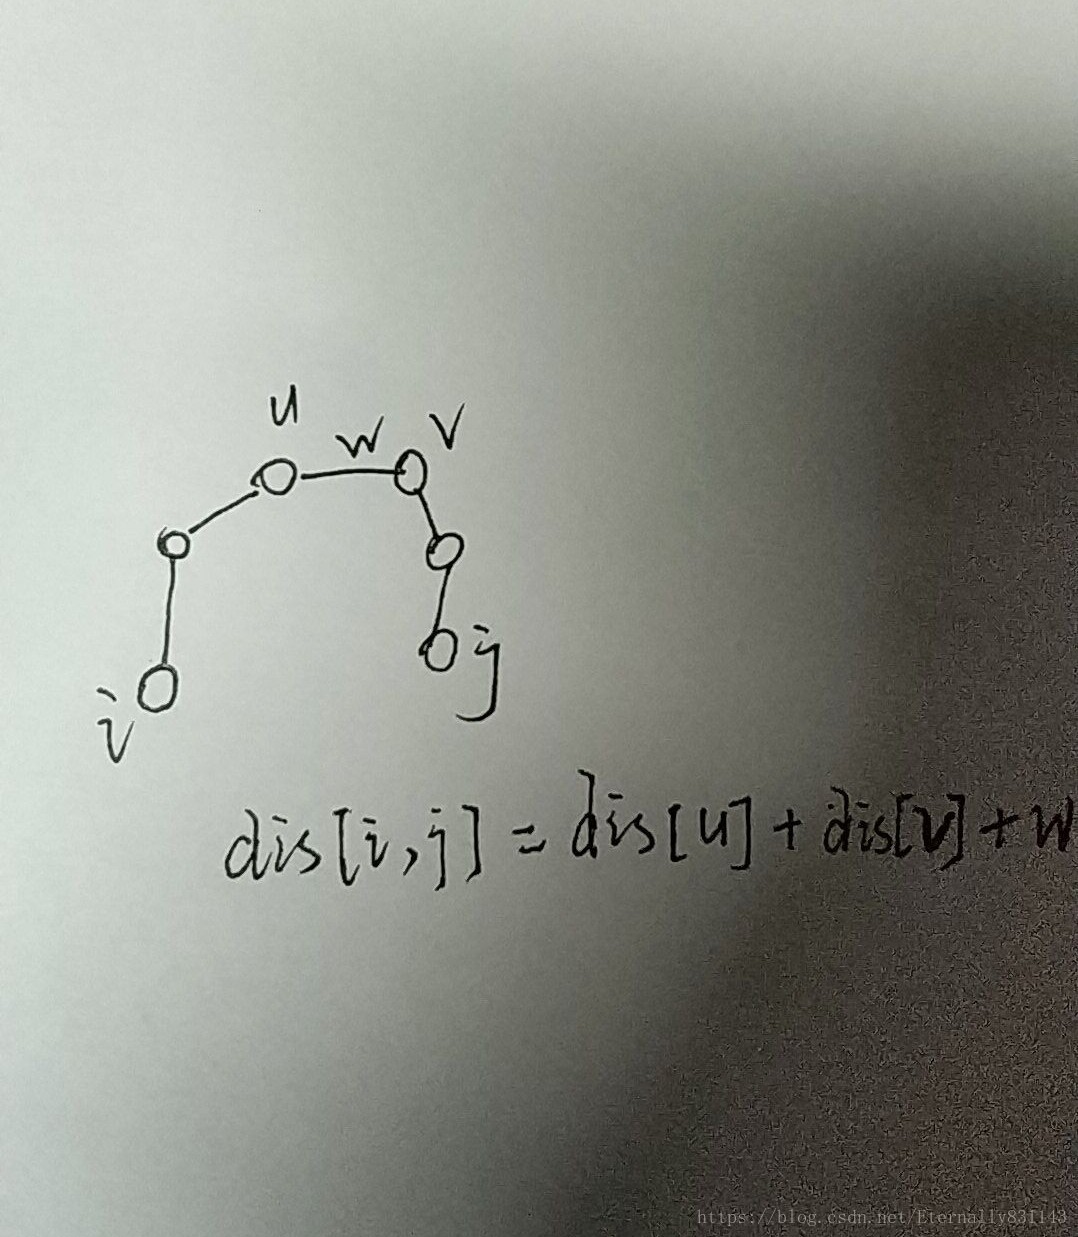 u
w v
i
j
dis[i,j] = dis[u] + dis[v] + w
https://blog.csdn.net/Eternally831143